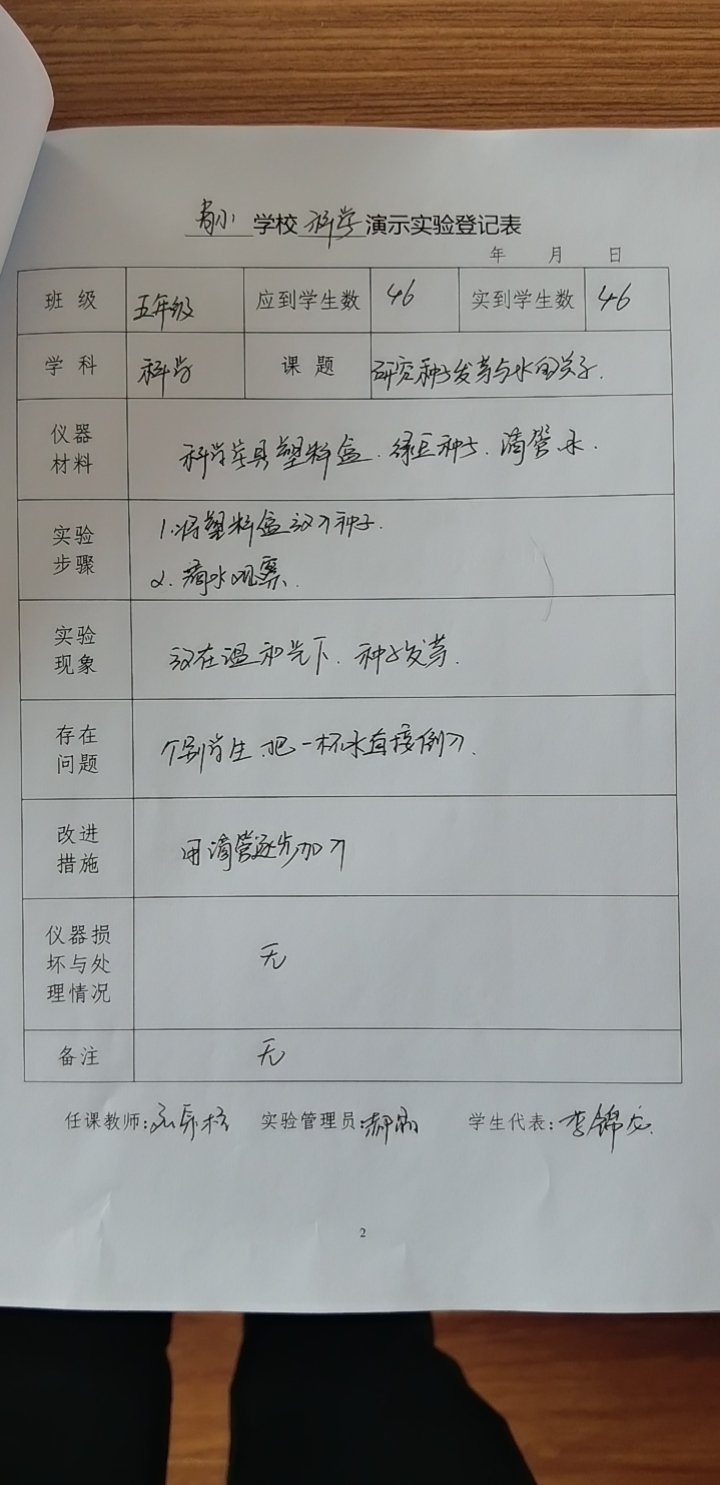 学校科学演示实验登记表
年 月 日
班级 五年级 应到学生数 46 实到学生数 46
学科 科学 课题 研究种子发芽与水的关系.
仪器材料 科学学具塑料盒.绿豆种子.滴管水.
实验步骤 1.将塑料盒放入种子.
2.滴水观察.
实验现象 放在温和光下.种子发芽.
存在问题 个别学生.把一杯水直接倒入.
改进措施 用滴管逐步加入
仪器损坏与处理情况 无
备注 无
任课教师: 实验管理员: 学生代表:李锦龙.
2